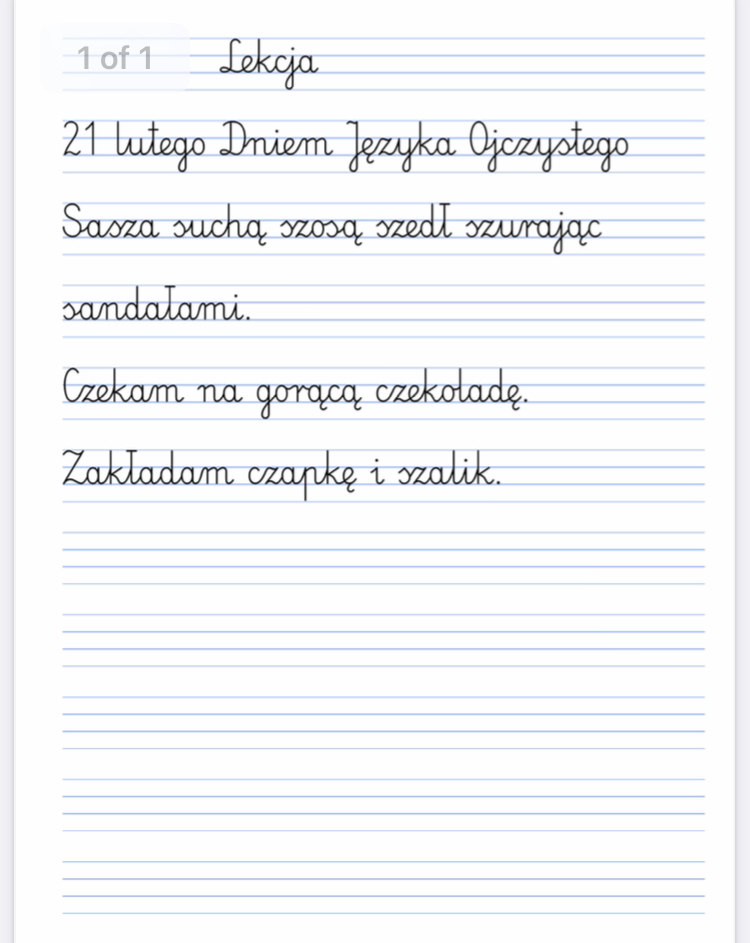 1 of 1
Lekcja
21 lutego Dniem Języka Ojczystego
Sasza suchą szosą szedł szurając
sandałami.
Czekam na gorącą czekoladę.
Zakładam czapkę i szalik.